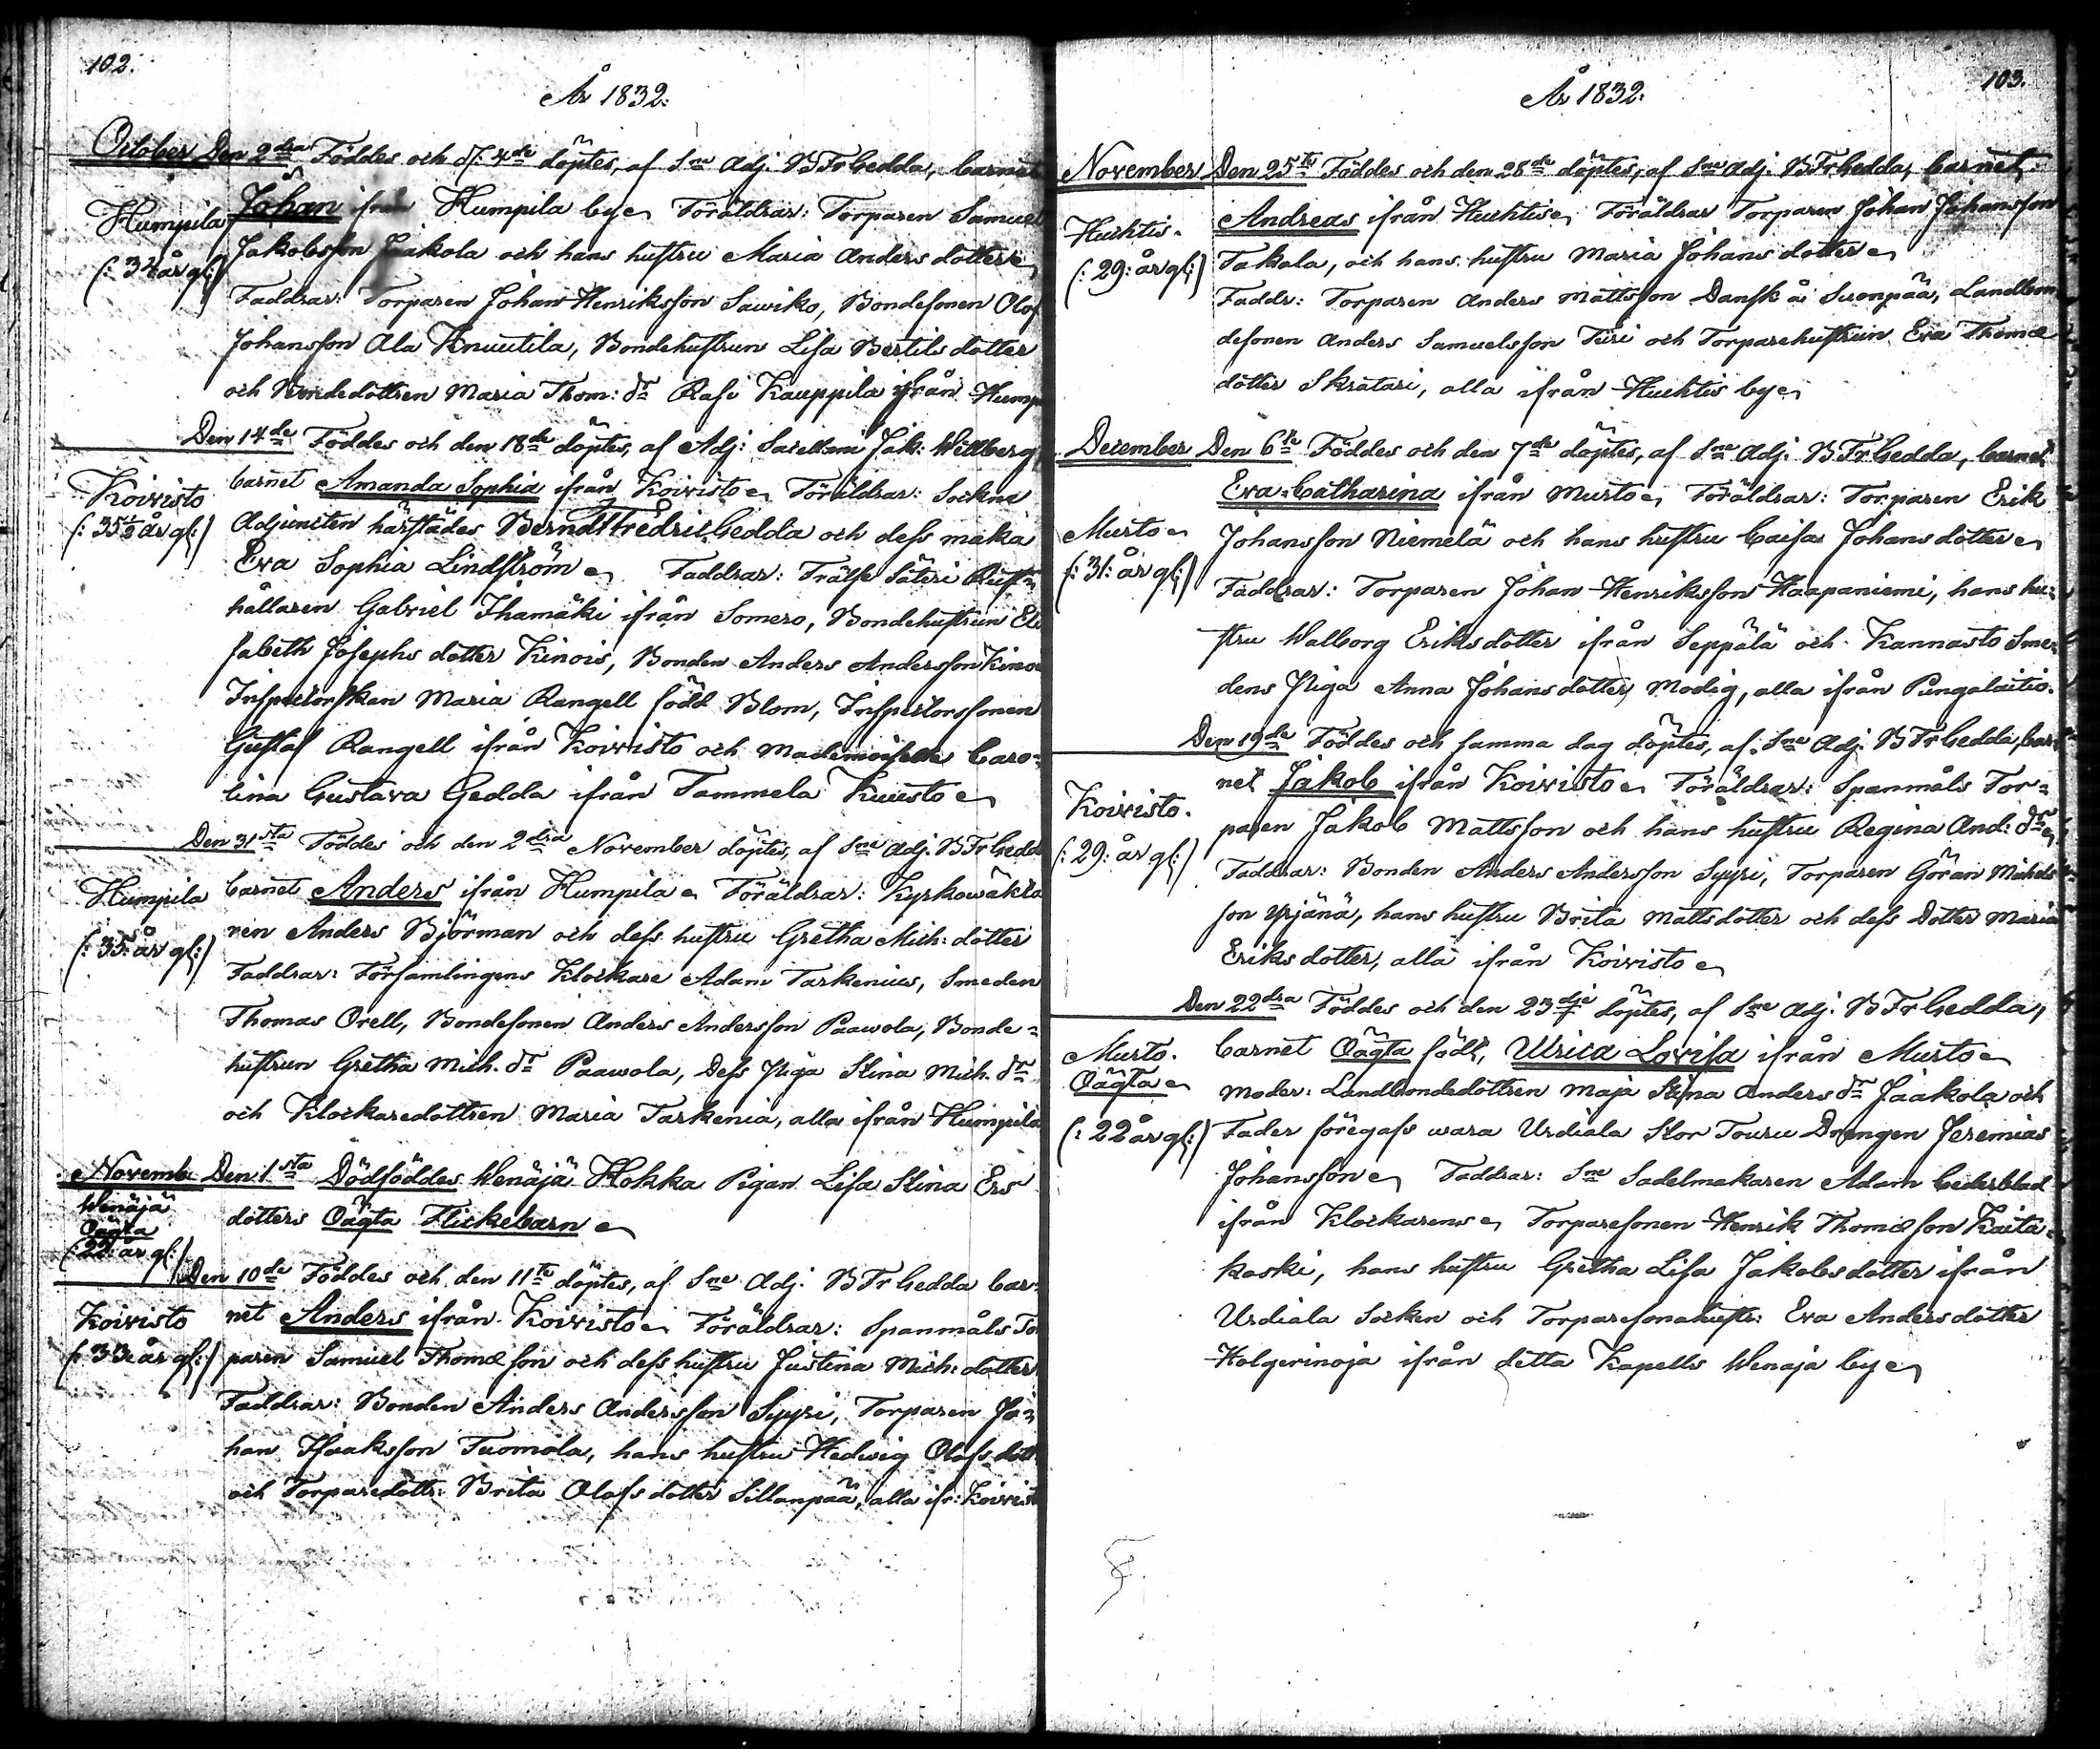 102.
År 1832.
October Den 2dra Föddes och d: 4de döptes, af Sne Adj. B Fr Gedda, barnet
Humpila Johan ifrån Humpila bye Föräldrar: Torparen Samuel
(: 34 år gl:) Jakobsson Jaakola och hans hustru Maria Anders dotter
Faddrar: Torparen Johan Henriksson Sawiko, Bondesonen Olof
Johansson Ala Knuutila, Bondehustrun Lisa Bertils dotter
och Bondedottren Maria Thom: dr Rasi Kauppila ifrån Hump
Den 14de Föddes och den 18de döptes, af Adj: Sacellani Jak: Widberg
Koivisto barnet Amanda Sophia ifrån Koivisto Föräldrar: Sockne
(: 35½ år gl:) Adjuncten härstädes Berndt Fredric Gedda och dess maka
Eva Sophia Lindström Faddrar: Frälse Säteri Rust-
hållaren Gabriel Ihamäki ifrån Somero, Bondehustrun Eli
sabeth Josephs dotter Kinois, Bonden Anders Andersson Kinois
Inspectorskan Maria Rangell född Blom, Inspectorssonen
Gustaf Rangell ifrån Koivisto och Mademoiselle Caro-
lina Gustava Gedda ifrån Tammela Kuusto
Den 31sta Föddes och den 2dra November döptes, af Sne Adj. B Fr Gedda
Humpila barnet Anders ifrån Humpila Föräldrar: Kyrkowäkta
(: 35: år gl:) ren Anders Björman och dess hustru Gretha Mich: dotter
Faddrar: Församlingens Klockare Adam Tarkenius, Smeden
Thomas Orell, Bondesonen Anders Andersson Paawola, Bonde-
hustrun Gretha Mich. dr Paawola, Dess Piga Stina Mich. dr
och Klockaredottren Maria Tarkenia, alla ifrån Humpila
Novemb. Den 1sta Dödföddes Wenäjä Hokka Pigan Lisa Stina Ers
Wenäjä dotters Oägta Flickebarn
Oägta
(: 22: år gl:)
Den 10de Föddes och den 11te döptes, af Sne Adj. B Fr Gedda bar-
Koivisto net Anders ifrån Koivisto Föräldrar: Spanmåls Tor
(: 33: år gl:) paren Samuel Thomæson och dess hustru Justina Mich: dotter
Faddrar: Bonden Anders Andersson Syyri, Torparen Jo-
han Isaaksson Tuomola, hans hustru Hedwig Olofs dott
och Torparedottr: Brita Olofs dotter Sillanpää, alla ifr: Koivist
103.
År 1832.
November Den 25te Föddes och den 28de döptes, af Sne Adj. B Fr Gedda, barnet
Huhtis. Andreas ifrån Huhtis Föräldrar Torparen Johan Johansson
(: 29: år gl:) Takala, och hans hustru Maria Johans dotter
Faddr: Torparen Anders Mattsson Dansk å Suonpää, Landbon
desonen Anders Samuelsson Turi och Torparehustrun Eva Thomæ
dotter Skratari, alla ifrån Huhtis bye
December Den 6te Föddes och den 7de döptes, af Sne Adj. B Fr Gedda, barnet
Eva Catharina ifrån Murto Föräldrar: Torparen Erik
Murto Johansson Niemelä och hans hustru Caisa Johans dotter
(: 31: år gl:) Faddrar: Torparen Johan Henriksson Haapaniemi, hans hu-
stru Walborg Eriks dotter ifrån Seppälä och Kannasto Sme-
dens Piga Anna Johans dotter Modig, alla ifrån Pungalaitio.
Den 19de Föddes och samma dag döptes, af Sne Adj. B Fr Gedda, bar-
net Jakob ifrån Koivisto Föräldrar: Spanmåls Tor-
Koivisto. paren Jakob Mattsson och hans hustru Regina And: dr
(: 29: år gl:) Faddrar: Bonden Anders Andersson Syyri, Torparen Göran Michels
son Yrjänä, hans hustru Brita Matts dotter och dess Dotter Maria
Eriks dotter, alla ifrån Koivisto
Den 22dra Föddes och den 23dje döptes, af Sne Adj. B Fr Gedda,
Murto. barnet Oägta född, Ulrica Lovisa ifrån Murto
Oägta Moder: Landbondedottren Maja Stina Anders dr Jaakola och
(: 22 år gl:) Fader föregafs wara Urdiala Stor Touru Drengen Jeremias
Johansson Faddrar: Sne Sadelmakaren Adam Cederblad
ifrån Klockarens Torparesonen Henrik Thomæson Kaita
koski, hans hustru Gretha Lisa Jakobs dotter ifrån
Urdiala Socken och Torparesonahustr: Eva Anders dotter
Holgerinoja ifrån detta Kapells Wenäja bye